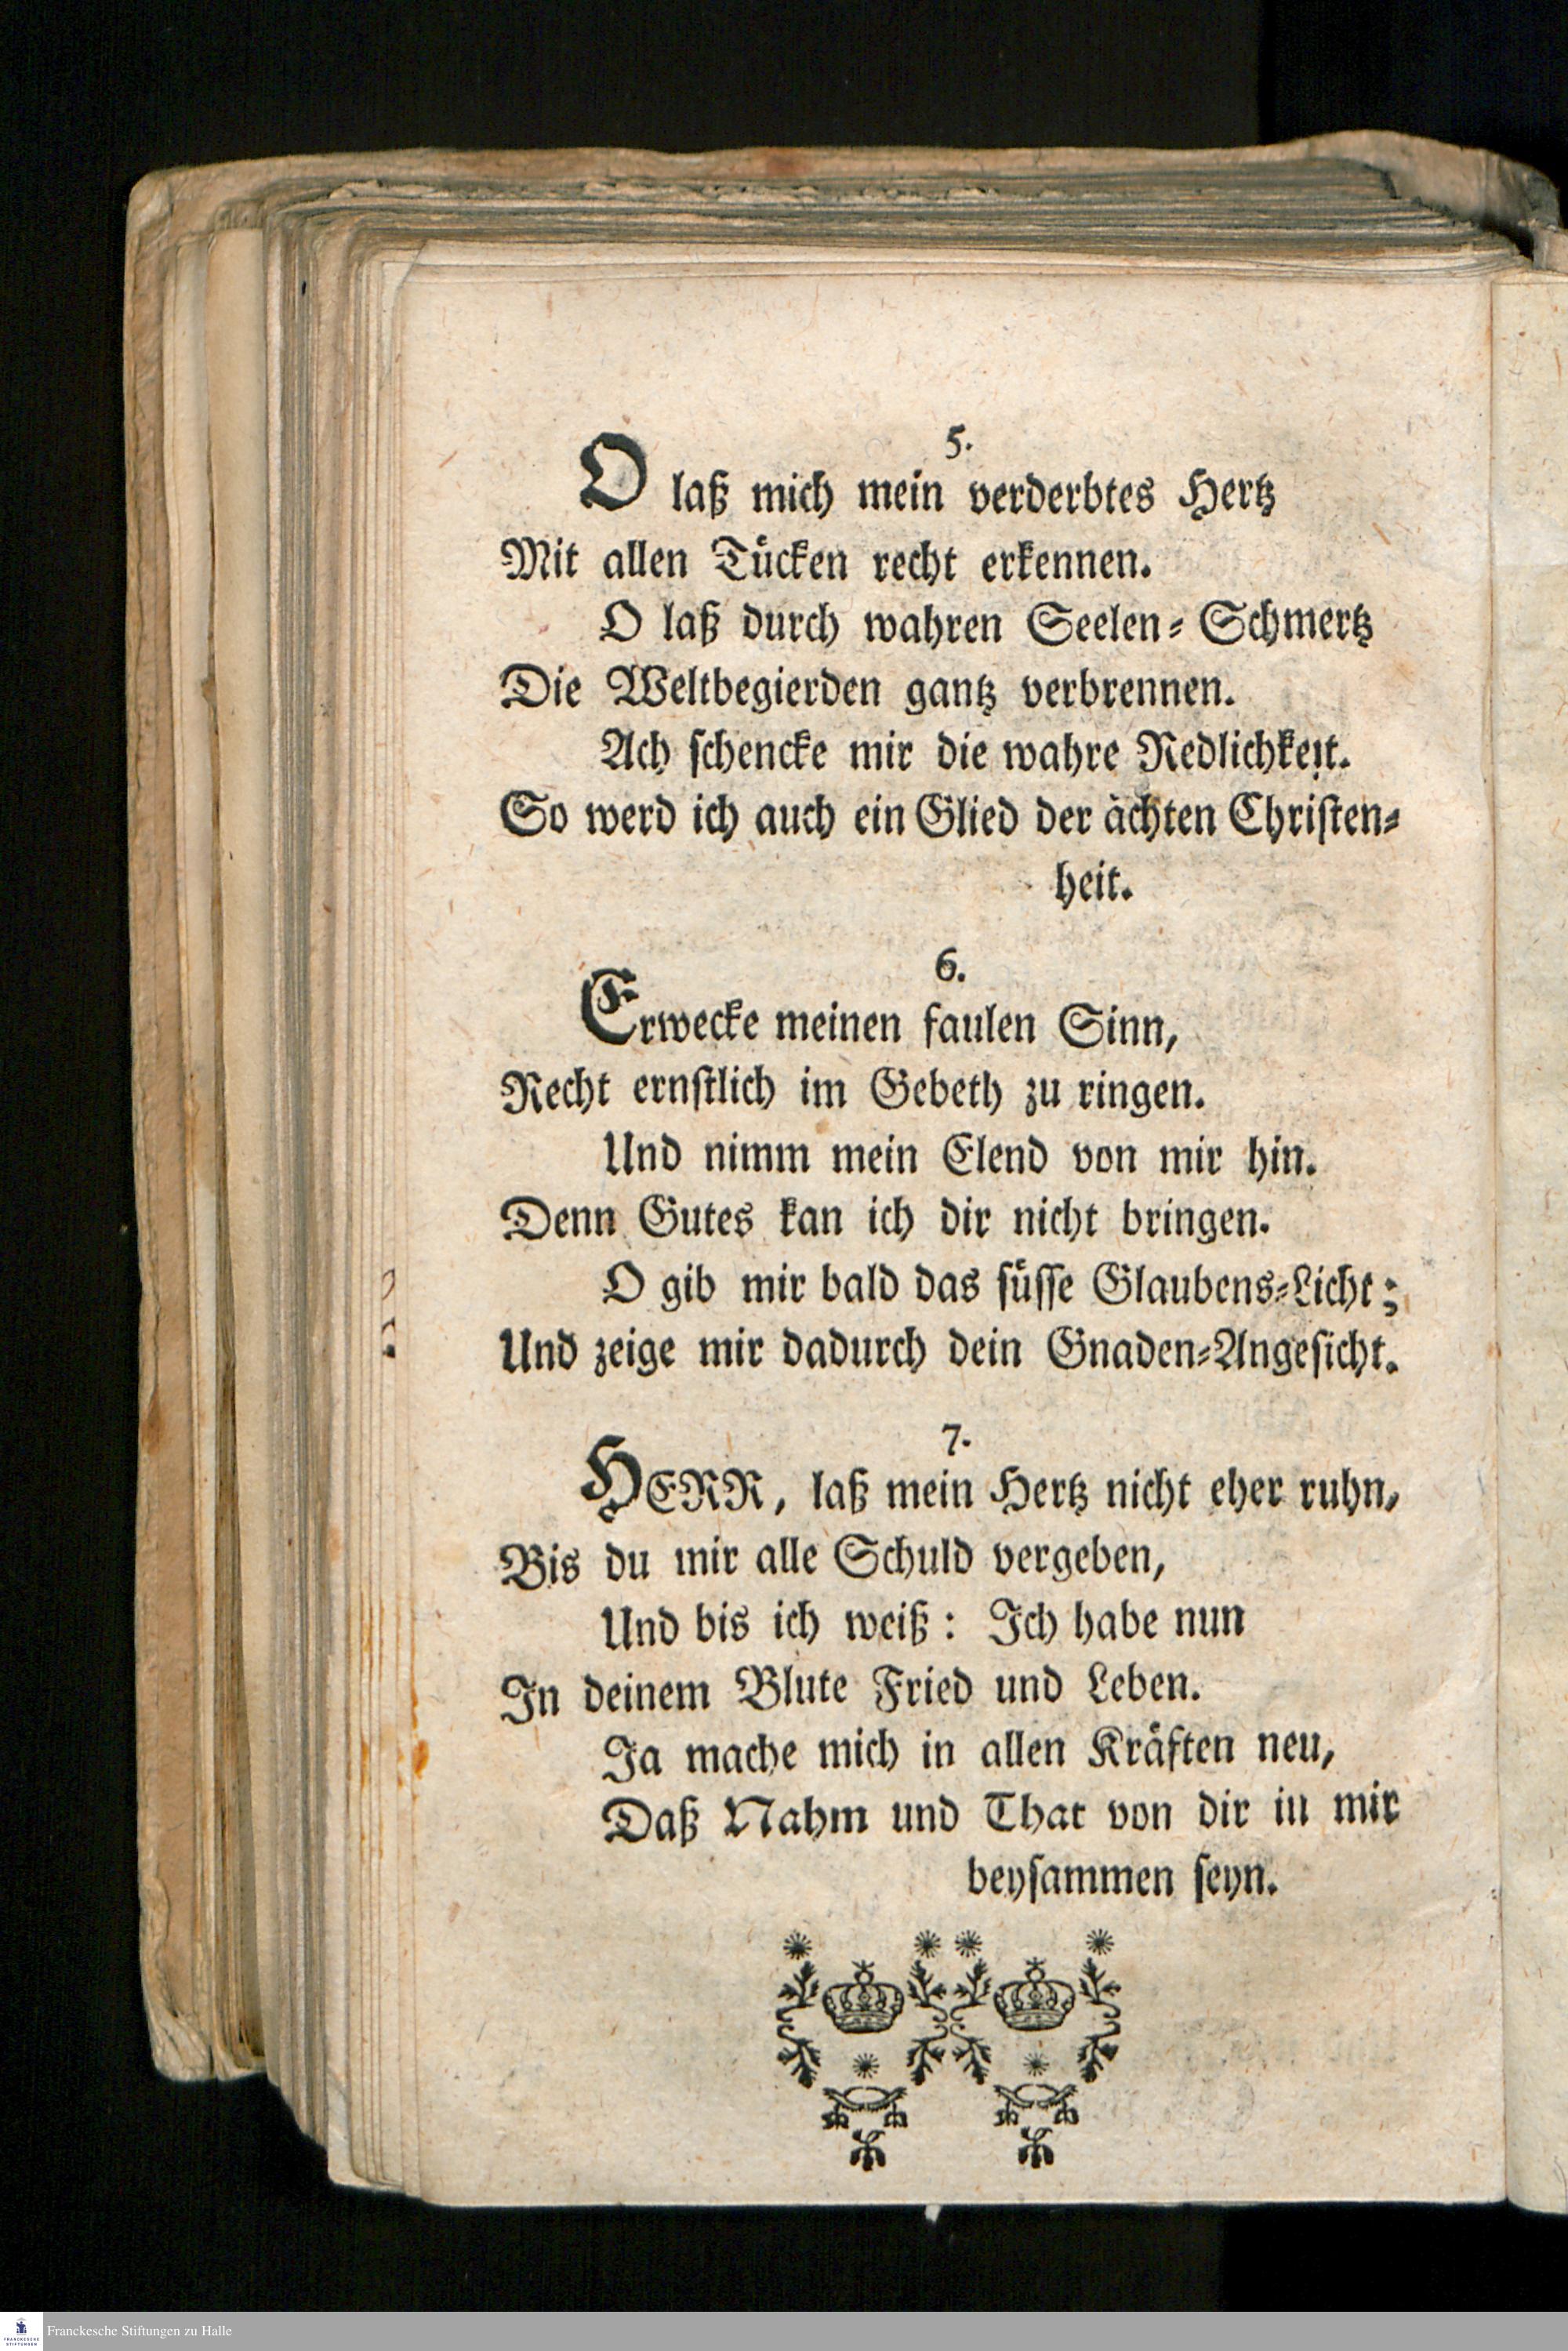 5.
O laß mich mein verderbtes Hertz
Mit allen Tücken recht erkennen.
O laß durch wahren Seelen-Schmertz
Die Weltbegierden gantz verbrennen.
Ach schencke mir die wahre Redlichkeit.
So werd ich auch ein Glied der ächten Christen-
heit.
6.
Erwecke meinen faulen Sinn,
Recht ernstlich im Gebeth zu ringen.
Und nimm mein Elend von mir hin.
Denn Gutes kan ich dir nicht bringen.
O gib mir bald das süsse Glaubens-Licht;
Und zeige mir dadurch dein Gnaden-Angesicht.
7.
HERR, laß mein Hertz nicht eher ruhn,
Bis du mir alle Schuld vergeben,
Und bis ich weiß: Ich habe nun
In deinem Blute Fried und Leben.
Ja mache mich in allen Kräften neu,
Daß Nahm und That von dir in mir
beysammen seyn.
FRANCKESCHE
STIFTUNGEN
Franckesche Stiftungen zu Halle